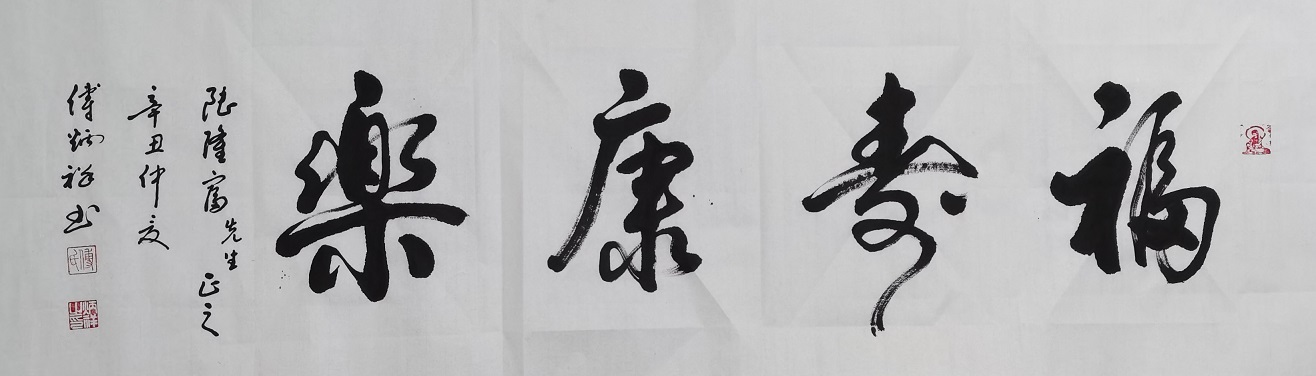 福壽康樂
陆隆富先生正之
辛丑仲夏
傅炳祥书